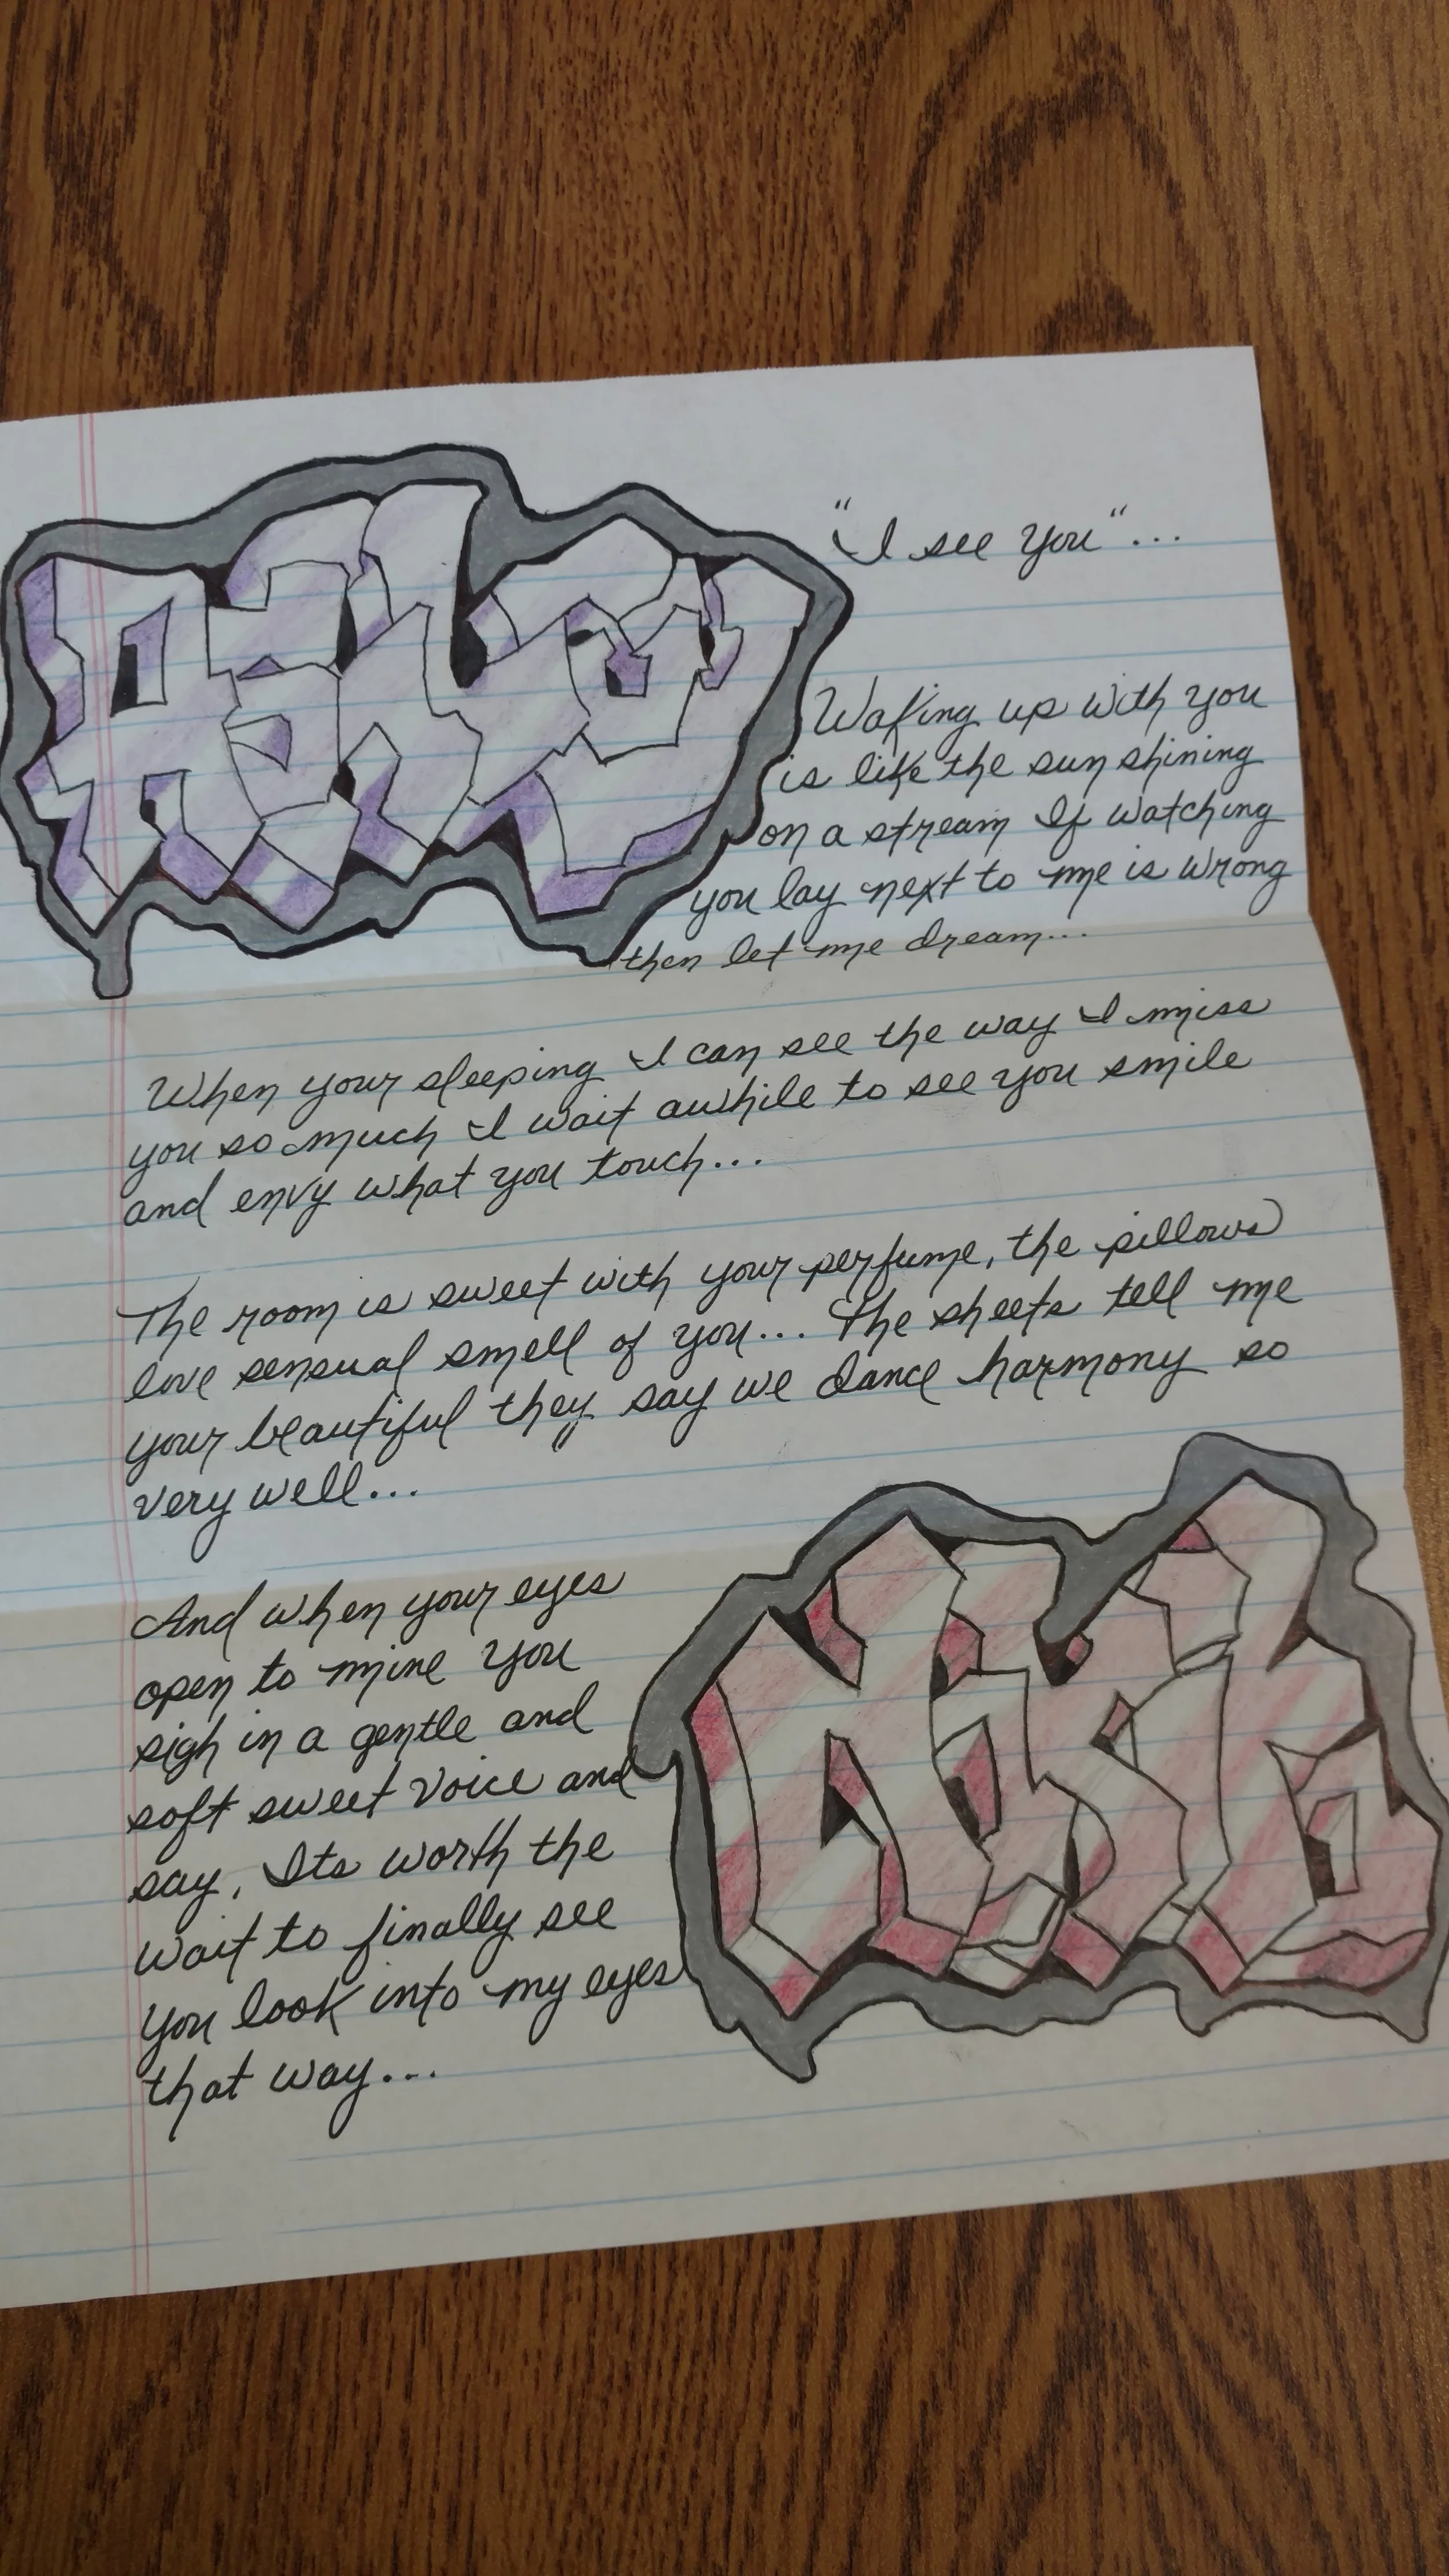 "I see you"...
Waking up with you
is like the sun shining
on a stream If watching
you lay next to me is wrong
then let me dream...
When your sleeping I can see the way I miss
you so much I wait awhile to see you smile
and envy what you touch...
The room is sweet with your perfume, the pillows
love sensual smell of you... The sheets tell me
your beautiful they say we dance harmony so
very well...
And when your eyes
open to mine you
sigh in a gentle and
soft sweet voice and
say, Its worth the
wait to finally see
you look into my eyes
that way...